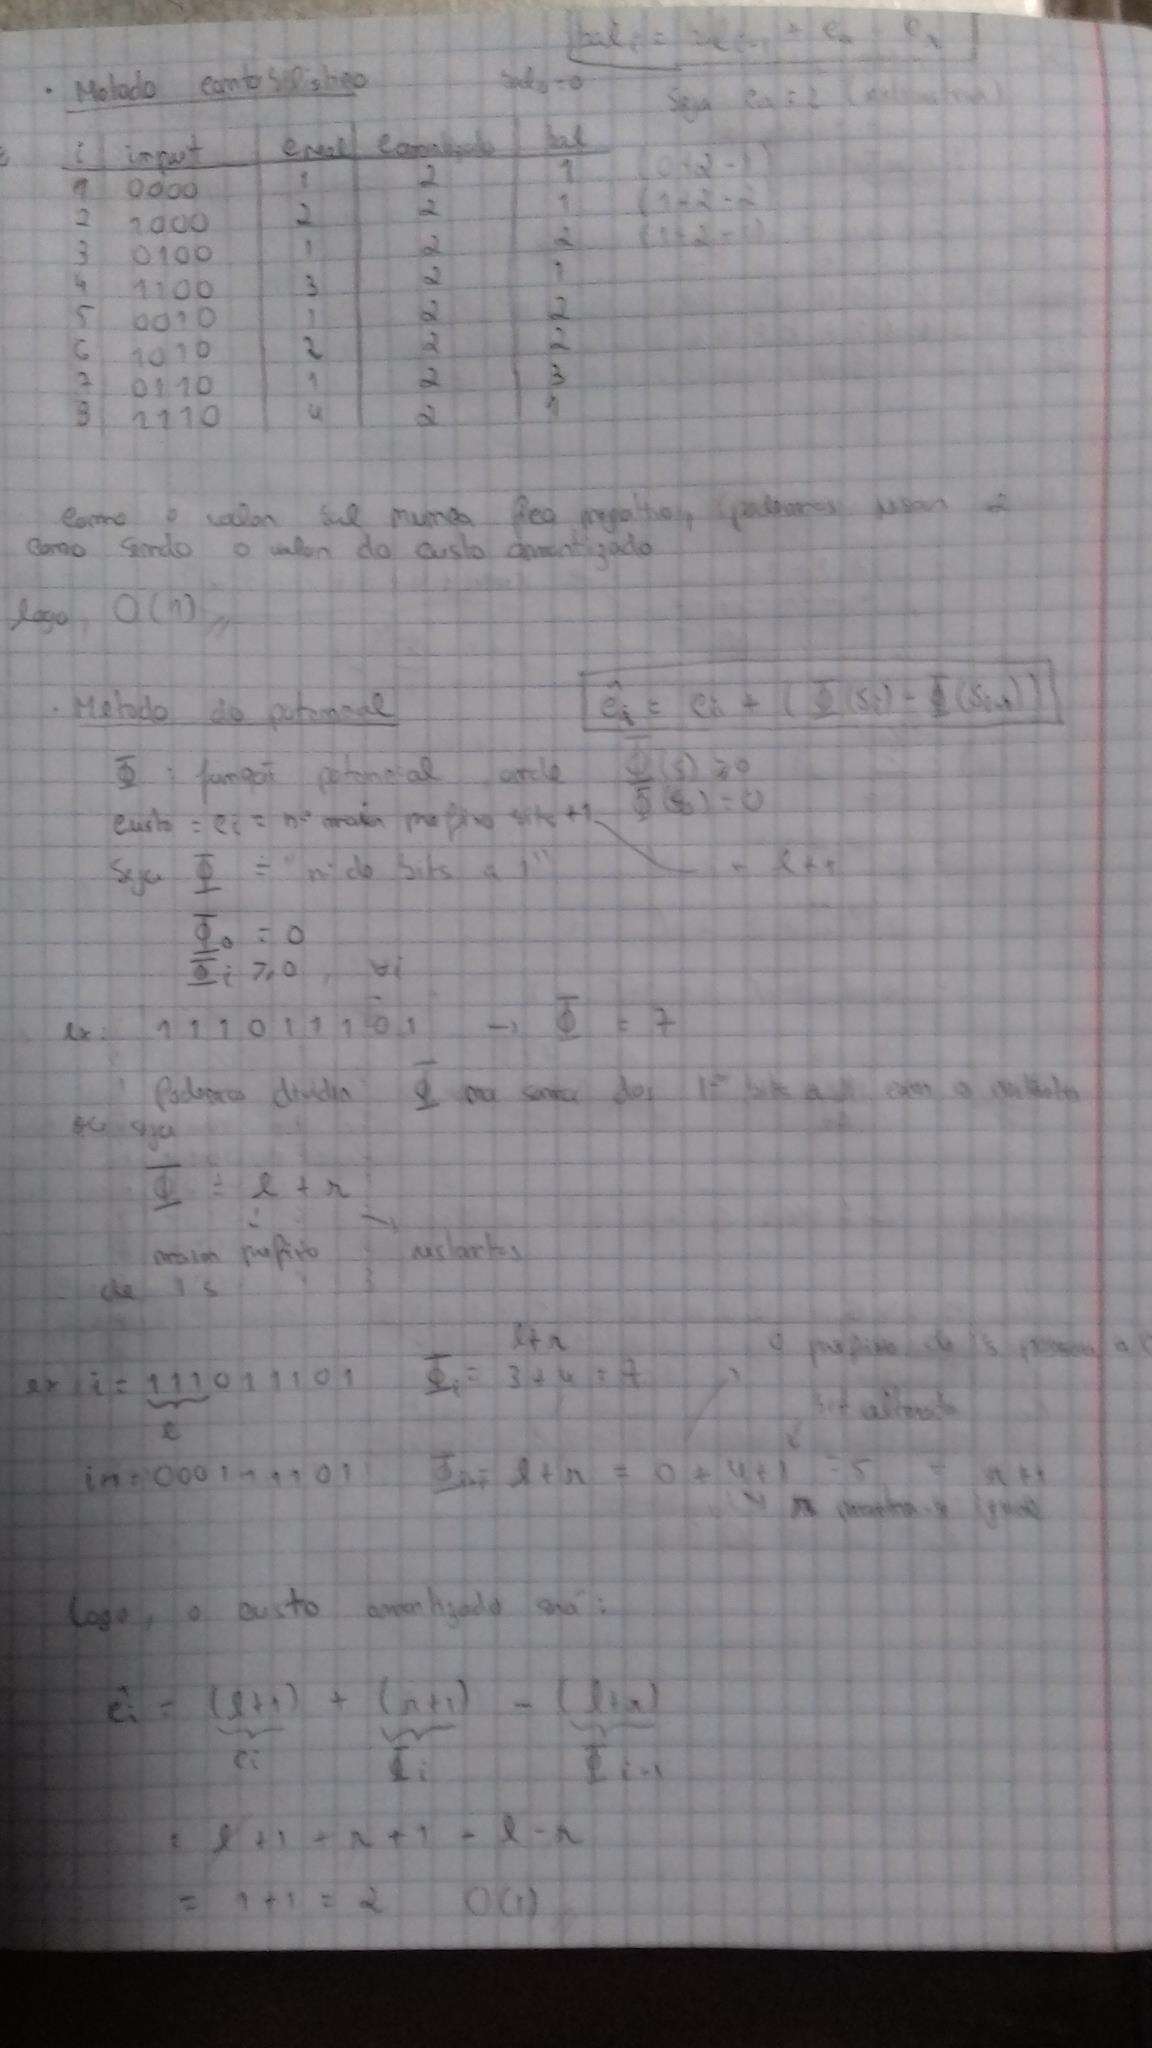 sal_i = sal_{i-1} + ĉ_i - c_i
· Metodo contabilistico sal_0 = 0
Seja ĉ_i = 2 (
i input c real c amortizado sal
1 0000 1 2 1 (0+2-1)
2 1000 2 2 1 (1+2-2)
3 0100 1 2 2 (1+2-1)
4 1100 3 2 1
5 0010 1 2 2
6 1010 2 2 2
7 0110 1 2 3
8 1110 4 2 1
Como o valor sal nunca fica negativo, podemos usar 2
como sendo o valor do custo amortizado
logo, O(n) //
· Metodo do potencial ĉ_i = c_i + (Φ(S_i) - Φ(S_{i-1}))
Φ : função potencial onde Φ(S) ≥ 0
Φ(S_0) = 0
custo = c_i = nº maior prefixo bits +1 = l+1
Seja Φ = "nº de bits a 1"
Φ_0 = 0
Φ_i ≥ 0, ∀i
ex: 1110111101 → Φ = 7
Podemos dividir Φ na soma dos 1ºs bits a 1 com o
ou seja
Φ = l + r
maior prefixo restantes
de 1s
l+r o prefixo de 1s passa a 0
ex i = 111011101 Φ_i = 3+4 = 7
l bit alterado
in = 000111101 Φ_{i+1} = l+r = 0+4+1 = 5 = r+1
r mantem-se igual
Logo, o custo amortizado será:
ĉ_i = (l+1) + (r+1) - (l+r)
c_i Φ_i Φ_{i-1}
= l+1 + r+1 - l - r
= 1+1 = 2 O(1)